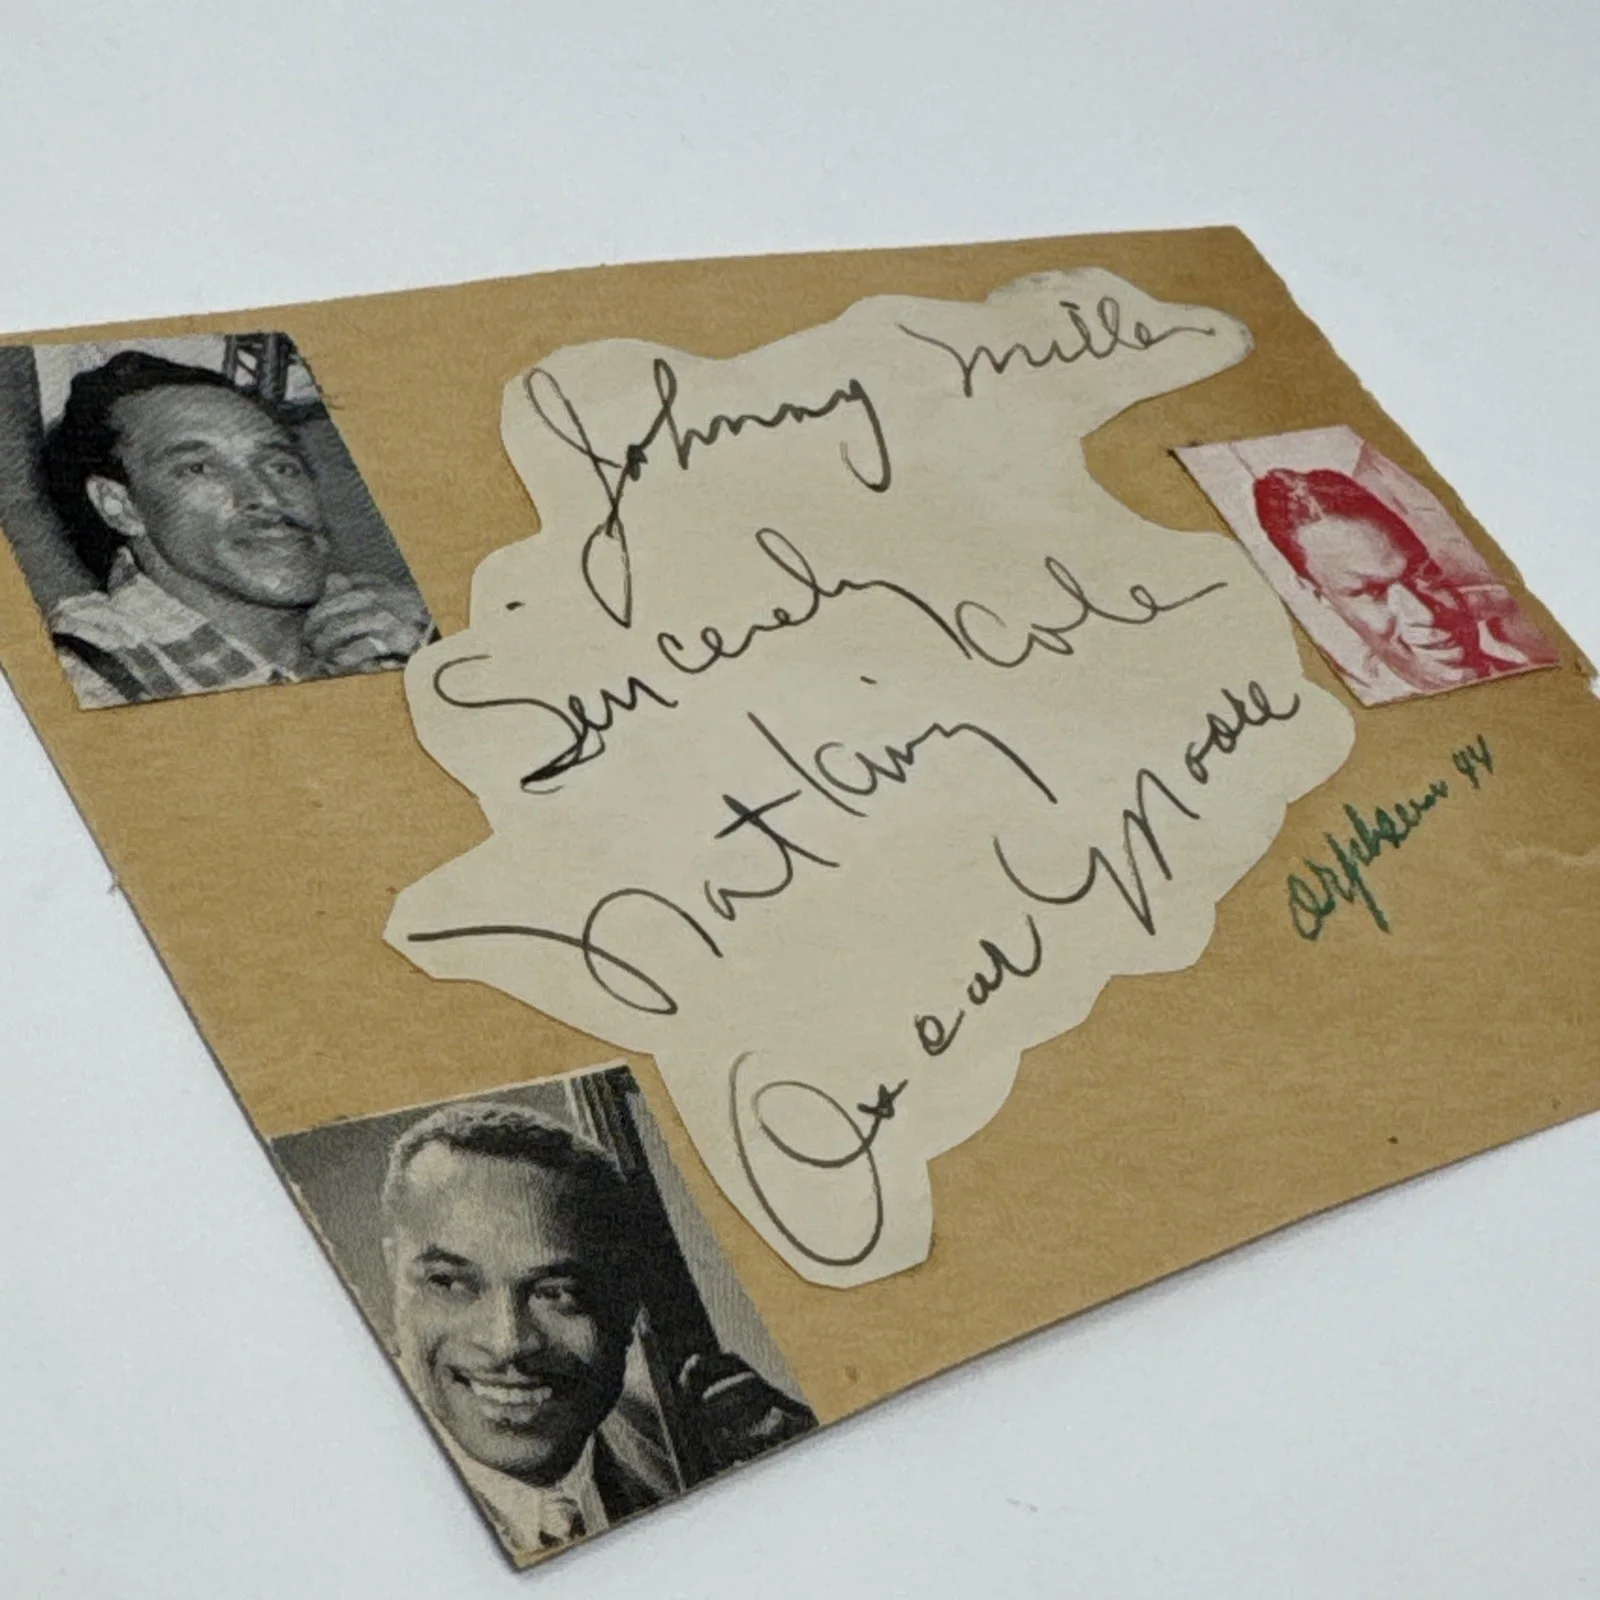 Johnny Miller
Sincerely
Nat King Cole
Oscar Moore
Orpheum 44